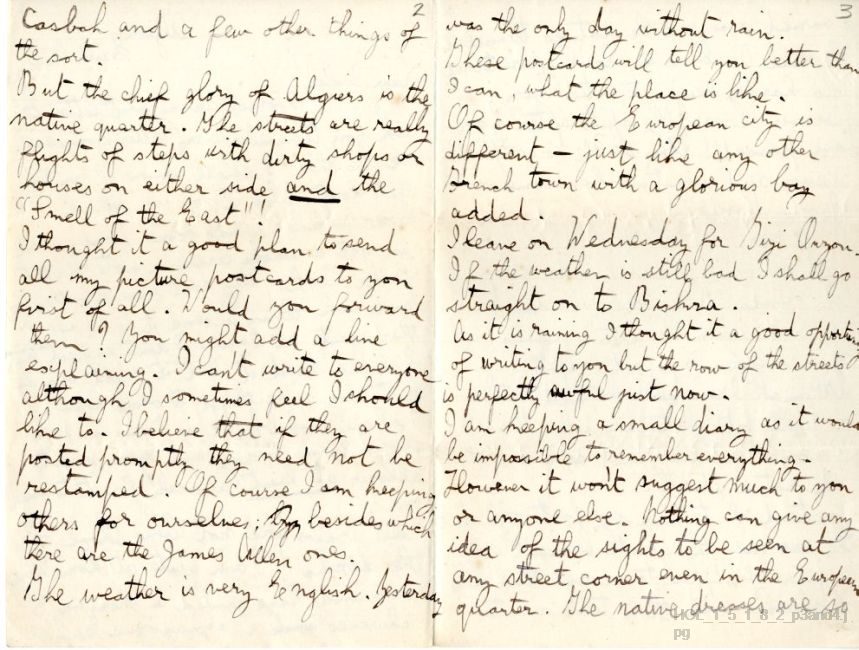 2
Casbah and a few other things of
the sort.
But the chief glory of Algiers is the
native quarter. The streets are really
flights of steps with dirty shops or
houses on either side and the
"Smell of the East"!
I thought it a good plan to send
all my picture postcards to you
first of all. Would you forward
them? You might add a line
explaining. I can't write to everyone
although I sometimes feel I should
like to. I believe that if they are
posted promptly they need not be
restamped. Of course I am keeping
others for ourselves; besides which
there are the James Allen ones.
The weather is very English. Yesterday
3
was the only day without rain.
These postcards will tell you better than
I can, what the place is like.
Of course the European city is
different – just like any other
French town with a glorious bay
added.
I leave on Wednesday for Tizi Ouzou.
If the weather is still bad I shall go
straight on to Biskra.
As it is raining I thought it a good
of writing to you but the row of the streets
is perfectly awful just now.
I am keeping a small diary as it would
be impossible to remember everything.
However it won't suggest much to you
or anyone else. Nothing can give any
idea of the sights to be seen at
any street corner even in the European
quarter. The native dresses are so